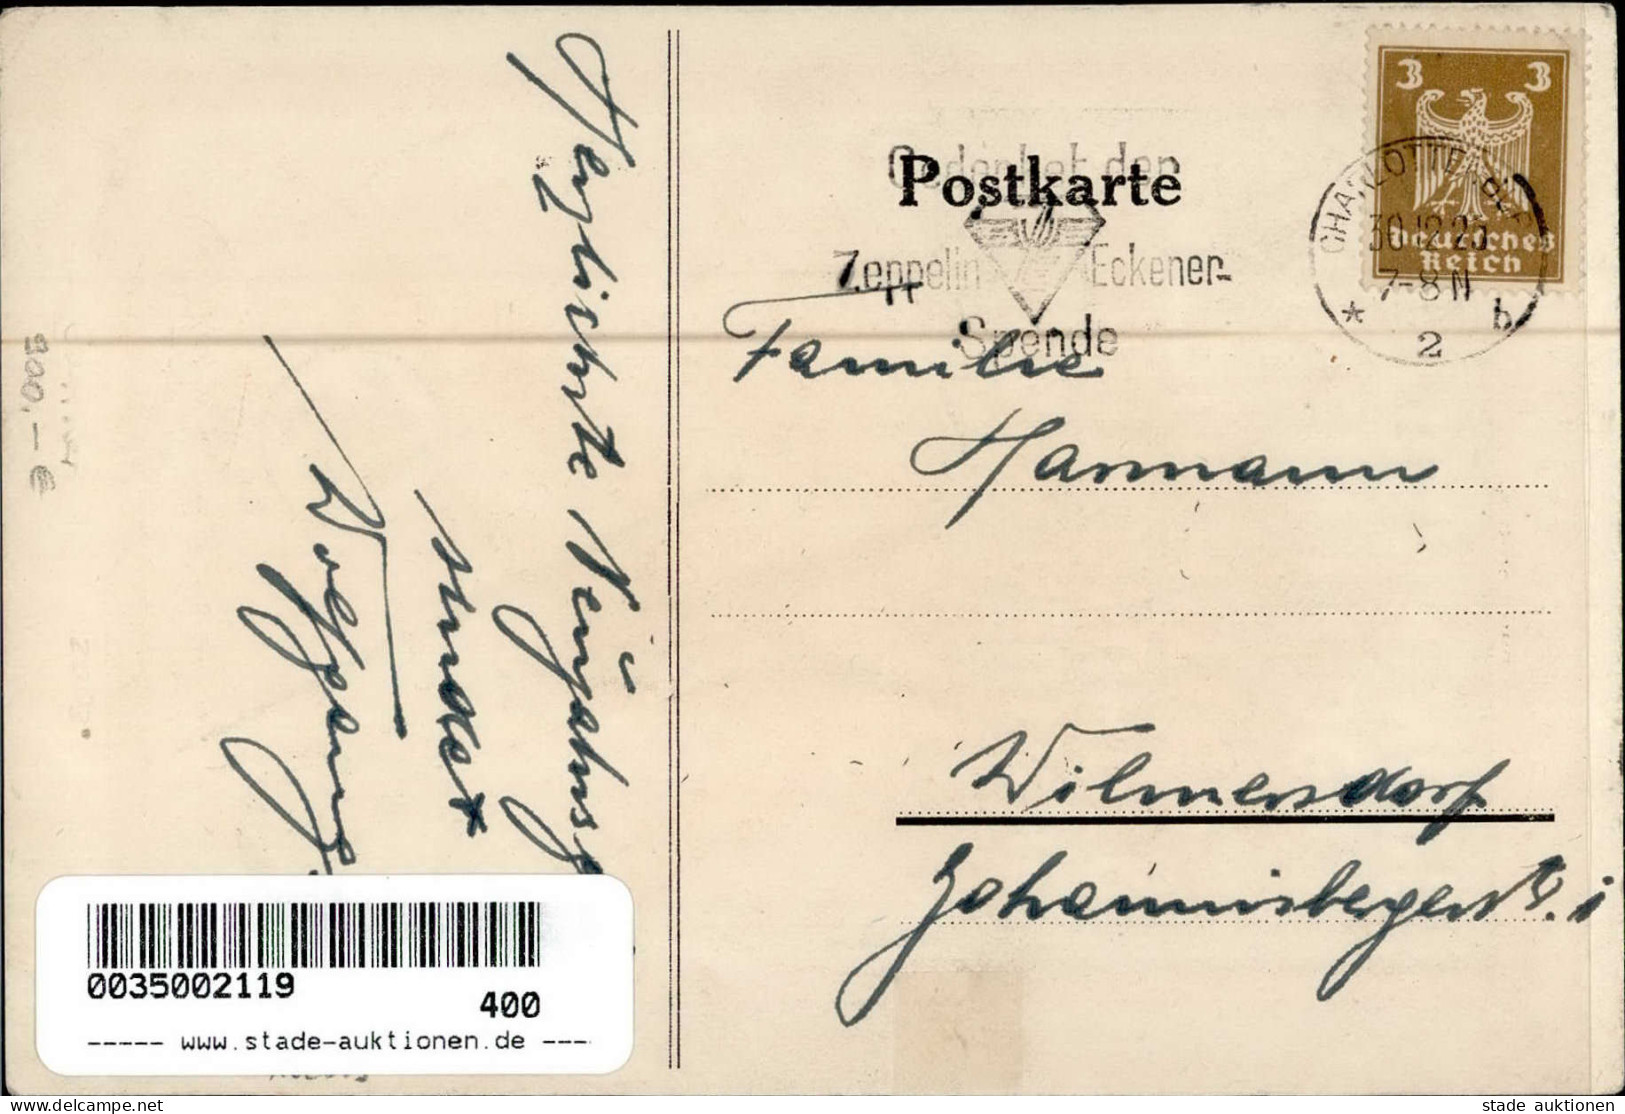 Herzlichste Neujahrsg
sendet
Wolfgang
900.-€
Postkarte
Gedenket der
Zeppelin Eckener-
Spende
3 3
Deutsches
Reich
CHARLOTTENBURG
30.12.25
7-8 N
* 2 b
Familie
Harmann
Wilmersdorf
Johannisbergerstr. 1
0035002119
400
----- www.stade-auktionen.de ---
delcampe.net
stade auktionen